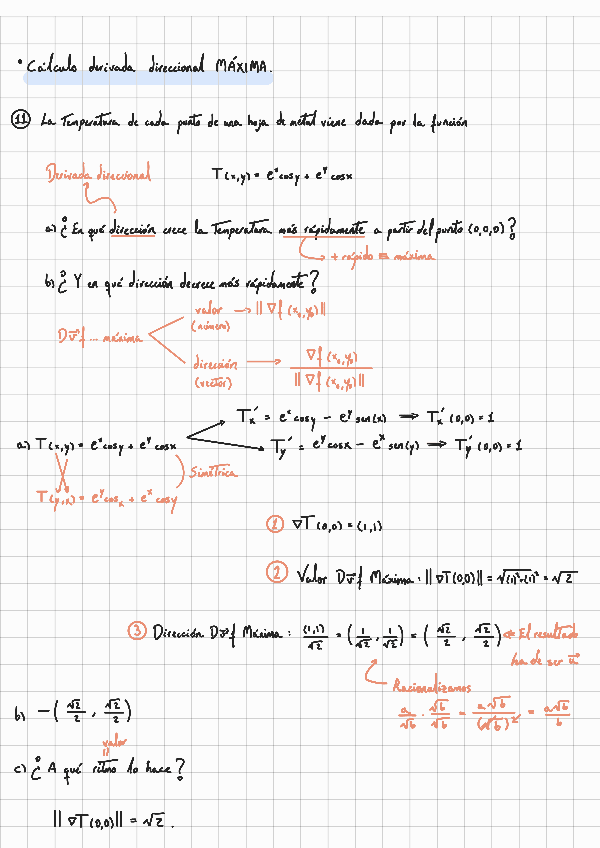 • Cálculo derivada direccional MÁXIMA.
⑪ La Temperatura de cada punto de una hoja de metal viene dada por la función
Derivada direccional
T(x,y) = e^x cosy + e^y cosx
a) ¿En qué dirección crece la Temperatura más rápidamente a partir del punto (0,0,0)?
→ + rápido ≡ máxima
b) ¿Y en qué dirección decrece más rápidamente?
D_v⃗ f ... máxima
valor → ||∇f(x₀,y₀)||
(número)
dirección → ∇f(x₀,y₀) / ||∇f(x₀,y₀)||
(vector)
a) T(x,y) = e^x cosy + e^y cosx
T_x' = e^x cosy − e^y sen(x) ⟹ T_x'(0,0) = 1
T_y' = e^y cosx − e^x sen(y) ⟹ T_y'(0,0) = 1
Simétrica
T(y,x) = e^y cosx + e^x cosy
① ∇T(0,0) = (1,1)
② Valor D_v⃗ f Máxima: ||∇T(0,0)|| = √((1)²+(1)²) = √2
③ Dirección D_v⃗ f Máxima: (1,1)/√2 = (1/√2, 1/√2) = (√2/2, √2/2) ← El resultado
ha de ser u⃗
Racionalizamos
a/√b · √b/√b = a√b/(√b)² = a√b/b
b) −(√2/2, √2/2)
valor
c) ¿A qué ritmo lo hace?
||∇T(0,0)|| = √2.